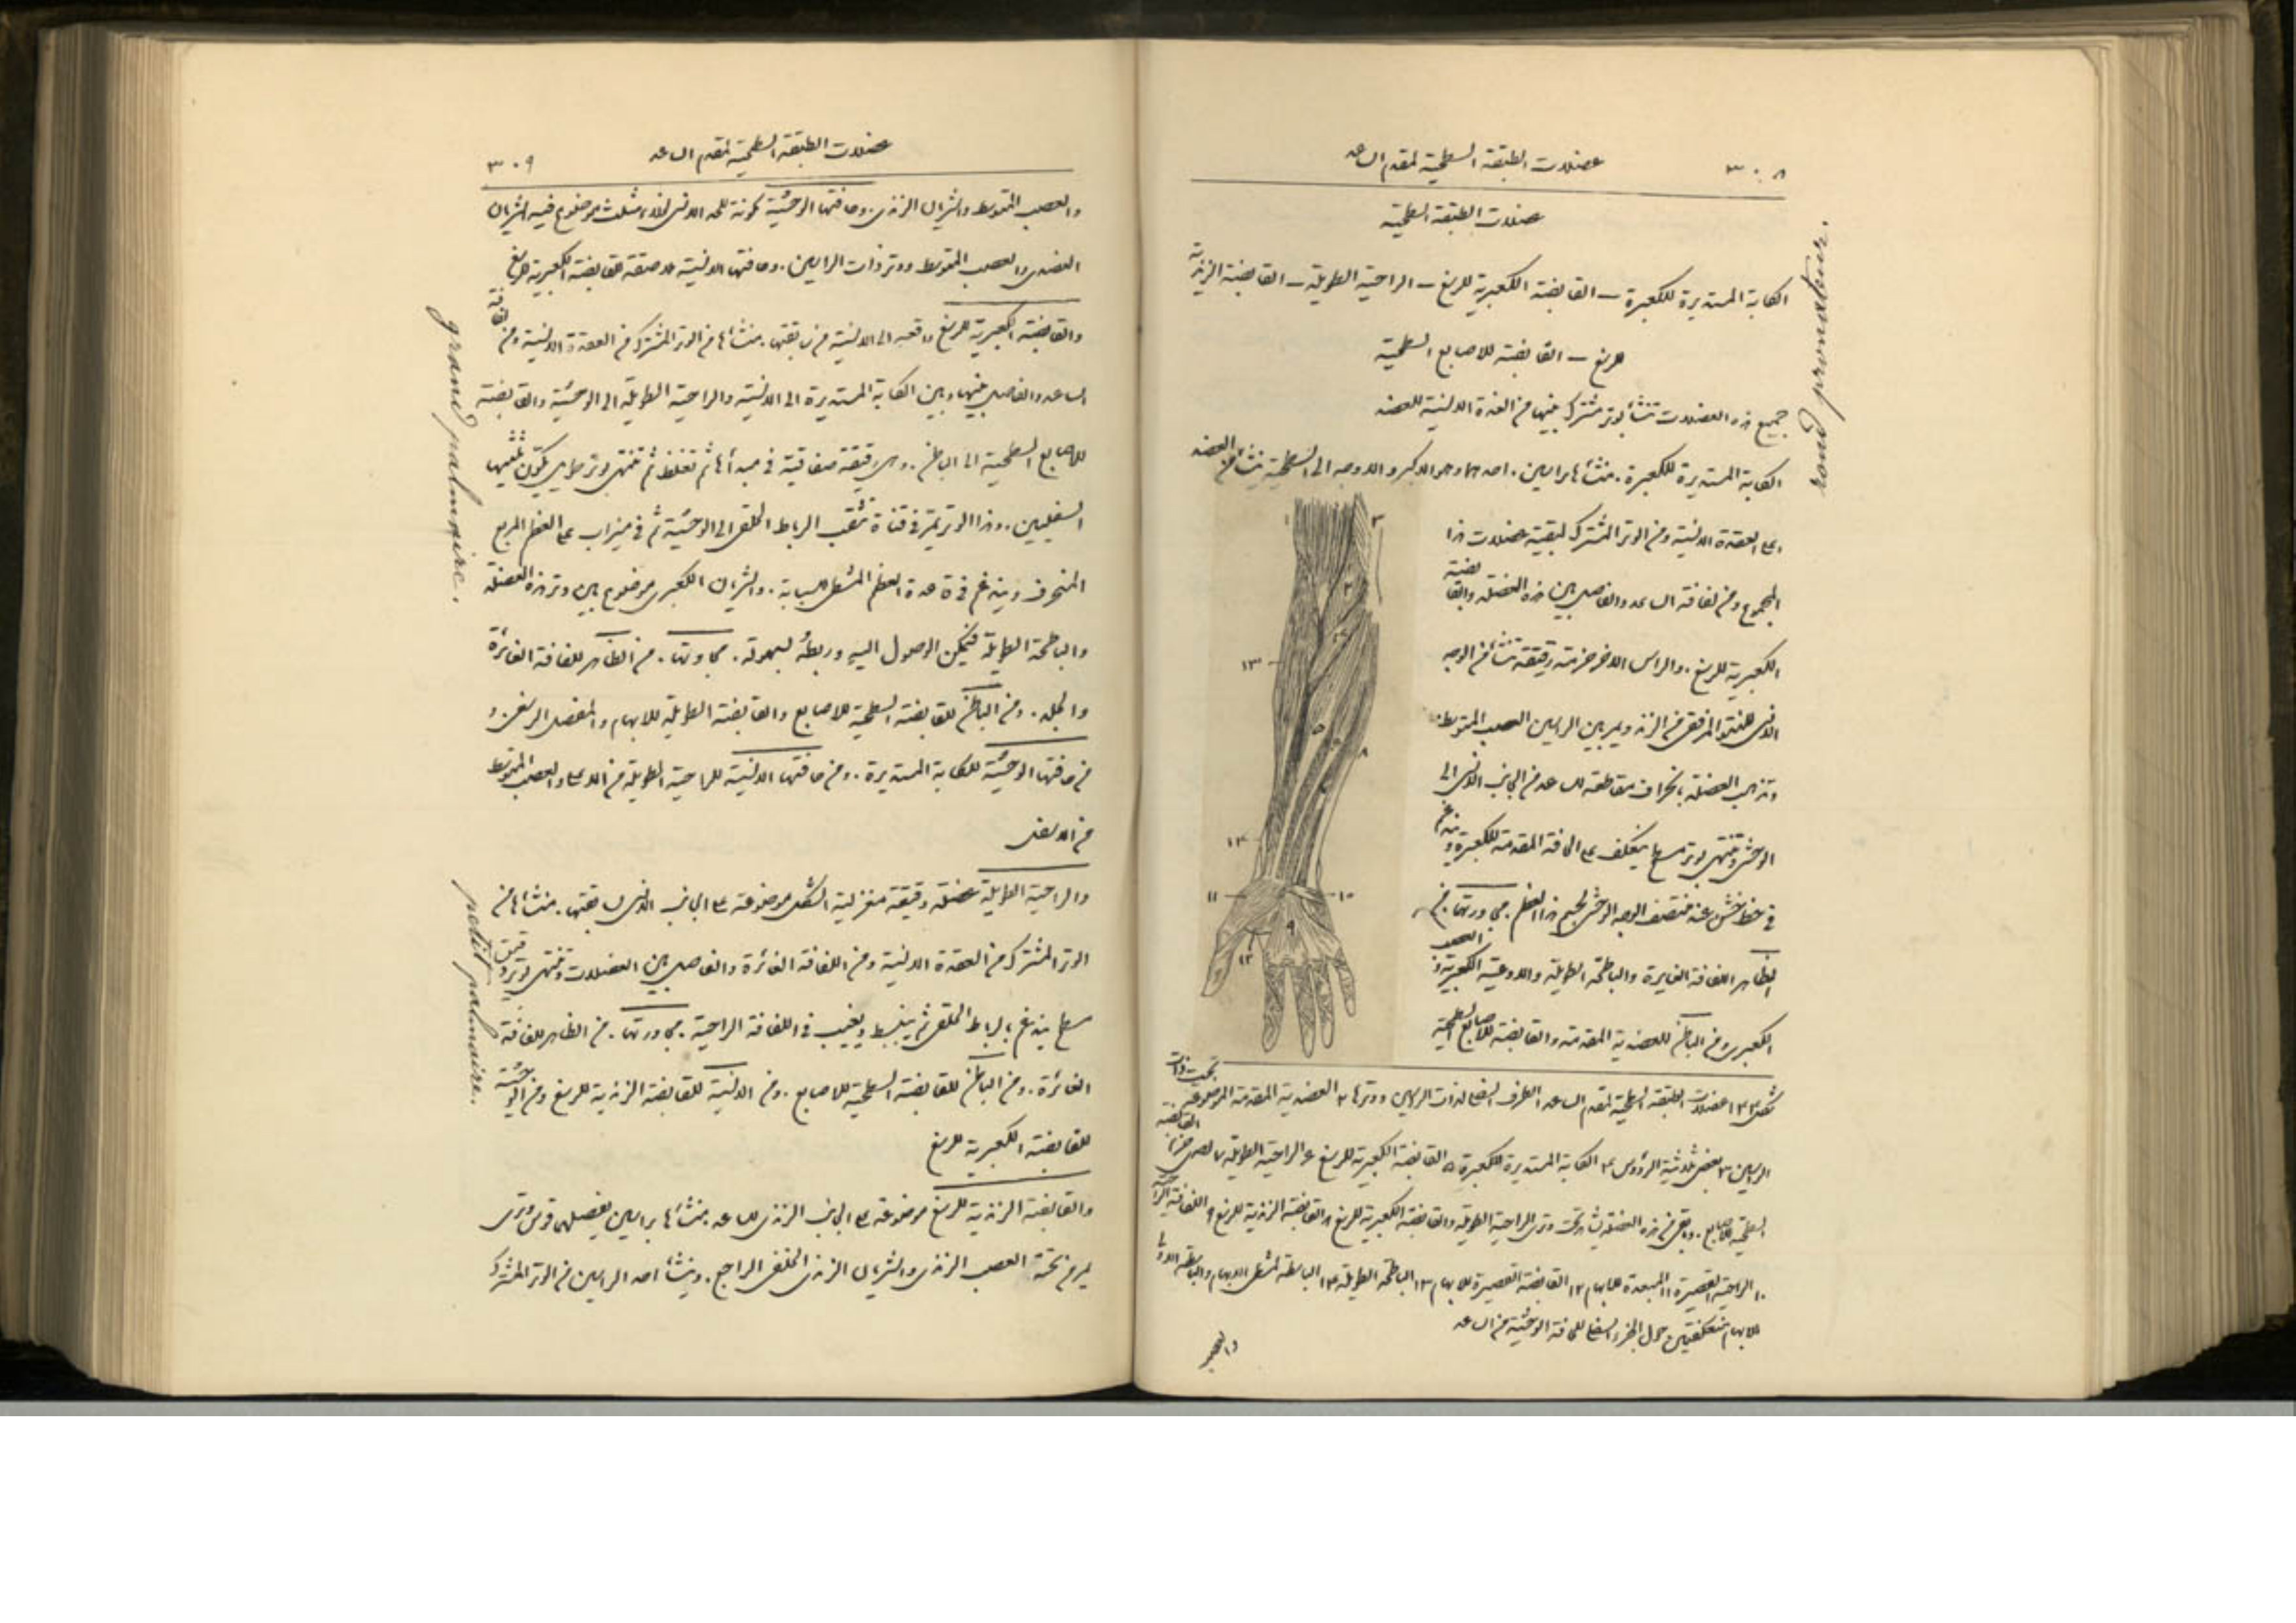 ٣٠٨
عضلات الطبقة السطحية لمقدم الساعد
عضلات الطبقة السطحية
الكابة المستديرة للكعبرة – القابضة الكعبرية للرسغ – الراحية الطويلة – القابضة الزندية
للرسغ – القابضة للاصابع السطحية
جميع هذه العضلات تنشأ بوتر مشترك بينها من العقدة الانسية للعضد
الكابة المستديرة للكعبرة. منشأها براسين. احدهما وهو الاكبر والاوجه الى السطحية ينشأ من العضد
اعلى العقدة الانسية ومن الوتر المشترك لبقية عضلات هذا
المجموع ومن لفافة الساعد والفاصل بين هذه العضلة والقابضة
الكعبرية للرسغ. والراس الاخر حزمة رقيقة تنشأ من الوجه
الانسي للنتو المرفقي من الزند ويمر بين الراسين العصب المتوسط.
وتذهب العضلة بانحراف مقاطعة للساعد من الجانب الانسي الى
الوحشي وتنتهي بوتر مسطح ينعكف على الحافة المقدمة للكعبرة ويندغم
في خط خشن عند منتصف الوجه الوحشي لجسم هذا العظم. مجاورتها. من
الظاهر اللفافة الغايرة والباطحة الطويلة والاوعية الكعبرية والعصب
الكعبري ومن الباطن للعضدية المقدمة والقابضة للاصابع السطحية
شكل ١٢٣ عضلات الطبقة السطحية لمقدم الساعد ١ الطرف السفلي لذات الراسين ووترها ٢ العضدية المقدمة الموضوعة تحت ذات
الراسين ٣ بعض ثلاثية الرؤوس ٤ الكابة المستديرة للكعبرة ٥ القابضة الكعبرية للرسغ ٦ الراحية الطويلة ٧ احدى حزم القابضة
السطحية للاصابع. وباقي من هذه العضلة يشاهد تحت وتري الراحية الطويلة والقابضة الكعبرية للرسغ ٨ القابضة الزندية للرسغ ٩ اللفافة الراحية
١٠ الراحية القصيرة ١١ المبعدة للابهام ١٢ القابضة القصيرة للابهام ١٣ الباطحة الطويلة ١٤ الباسطة لمشط الابهام والباسطة الاولى
للابهام منعكفتين حول الجزء السفلي للحافة الوحشية من الساعد
والعصب
rond pronateur.
١
٣
٢
٤
١٣
٥
٦
٨
٧
١٤
١١
١٠
٩
١٢
٣٠٩
عضلات الطبقة السطحية لمقدم الساعد
والعصب المتوسط والشريان الزندي. وحافتها الوحشية مكونة للحد الانسي لخلاء مثلث موضوع فيه الشريان
العضدي والعصب المتوسط ووتر ذات الراسين. وحافتها الانسية ملاصقة للقابضة الكعبرية للرسغ
والقابضة الكعبرية للرسغ واقعة الى الانسية من سابقتها. منشأها من الوتر المشترك من العقدة الانسية ومن لفافة
الساعد والفاصل بينها وبين الكابة المستديرة الى الانسية والراحية الطويلة الى الوحشية والقابضة
للاصابع السطحية الى الباطن. وهي رقيقة صفاقية في مبدأها ثم تغلظ ثم تنتهي بوتر طويل يكون ثلثيها
السفليين. وهذا الوتر يمر في قناة تثقب الرباط الحلقي الى الوحشية ثم في ميزاب على العظم المربع
المنحرف ويندغم في قاعدة العظم المشطي للسبابة. والشريان الكعبري موضوع بين وتر هذه العضلة
والباطحة الطويلة فيمكن الوصول اليه وربطه بسهولة. مجاورتها. من الظاهر للفافة الغائرة
والجلد. ومن الباطن للقابضة السطحية للاصابع والقابضة الطويلة للابهام والمفصل الرسغي. و
من حافتها الوحشية للكابة المستديرة. ومن حافتها الانسية للراحية الطويلة من الاعلى والعصب المتوسط
من الاسفل
والراحية الطويلة عضلة دقيقة مغزلية الشكل موضوعة على الجانب الانسي لسابقتها. منشأها من
الوتر المشترك من العقدة الانسية ومن اللفافة الغائرة والفاصل بين العضلات وتنتهي بوتر دقيق
مسطح يندغم بالرباط الحلقي ثم ينبسط ويغيب في اللفافة الراحية. مجاورتها. من الظاهر للفافة
الغائرة. ومن الباطن للقابضة السطحية للاصابع. ومن الانسية للقابضة الزندية للرسغ ومن الوحشية
للقابضة الكعبرية للرسغ
والقابضة الزندية للرسغ موضوعة على الجانب الزندي للساعد. منشأها براسين يفصلهما قوس وتري
يمر من تحته العصب الزندي والشريان الزندي الخلفي الراجع. وينشأ احد الراسين من الوتر المشترك
grand palmaire.
petit palmaire.